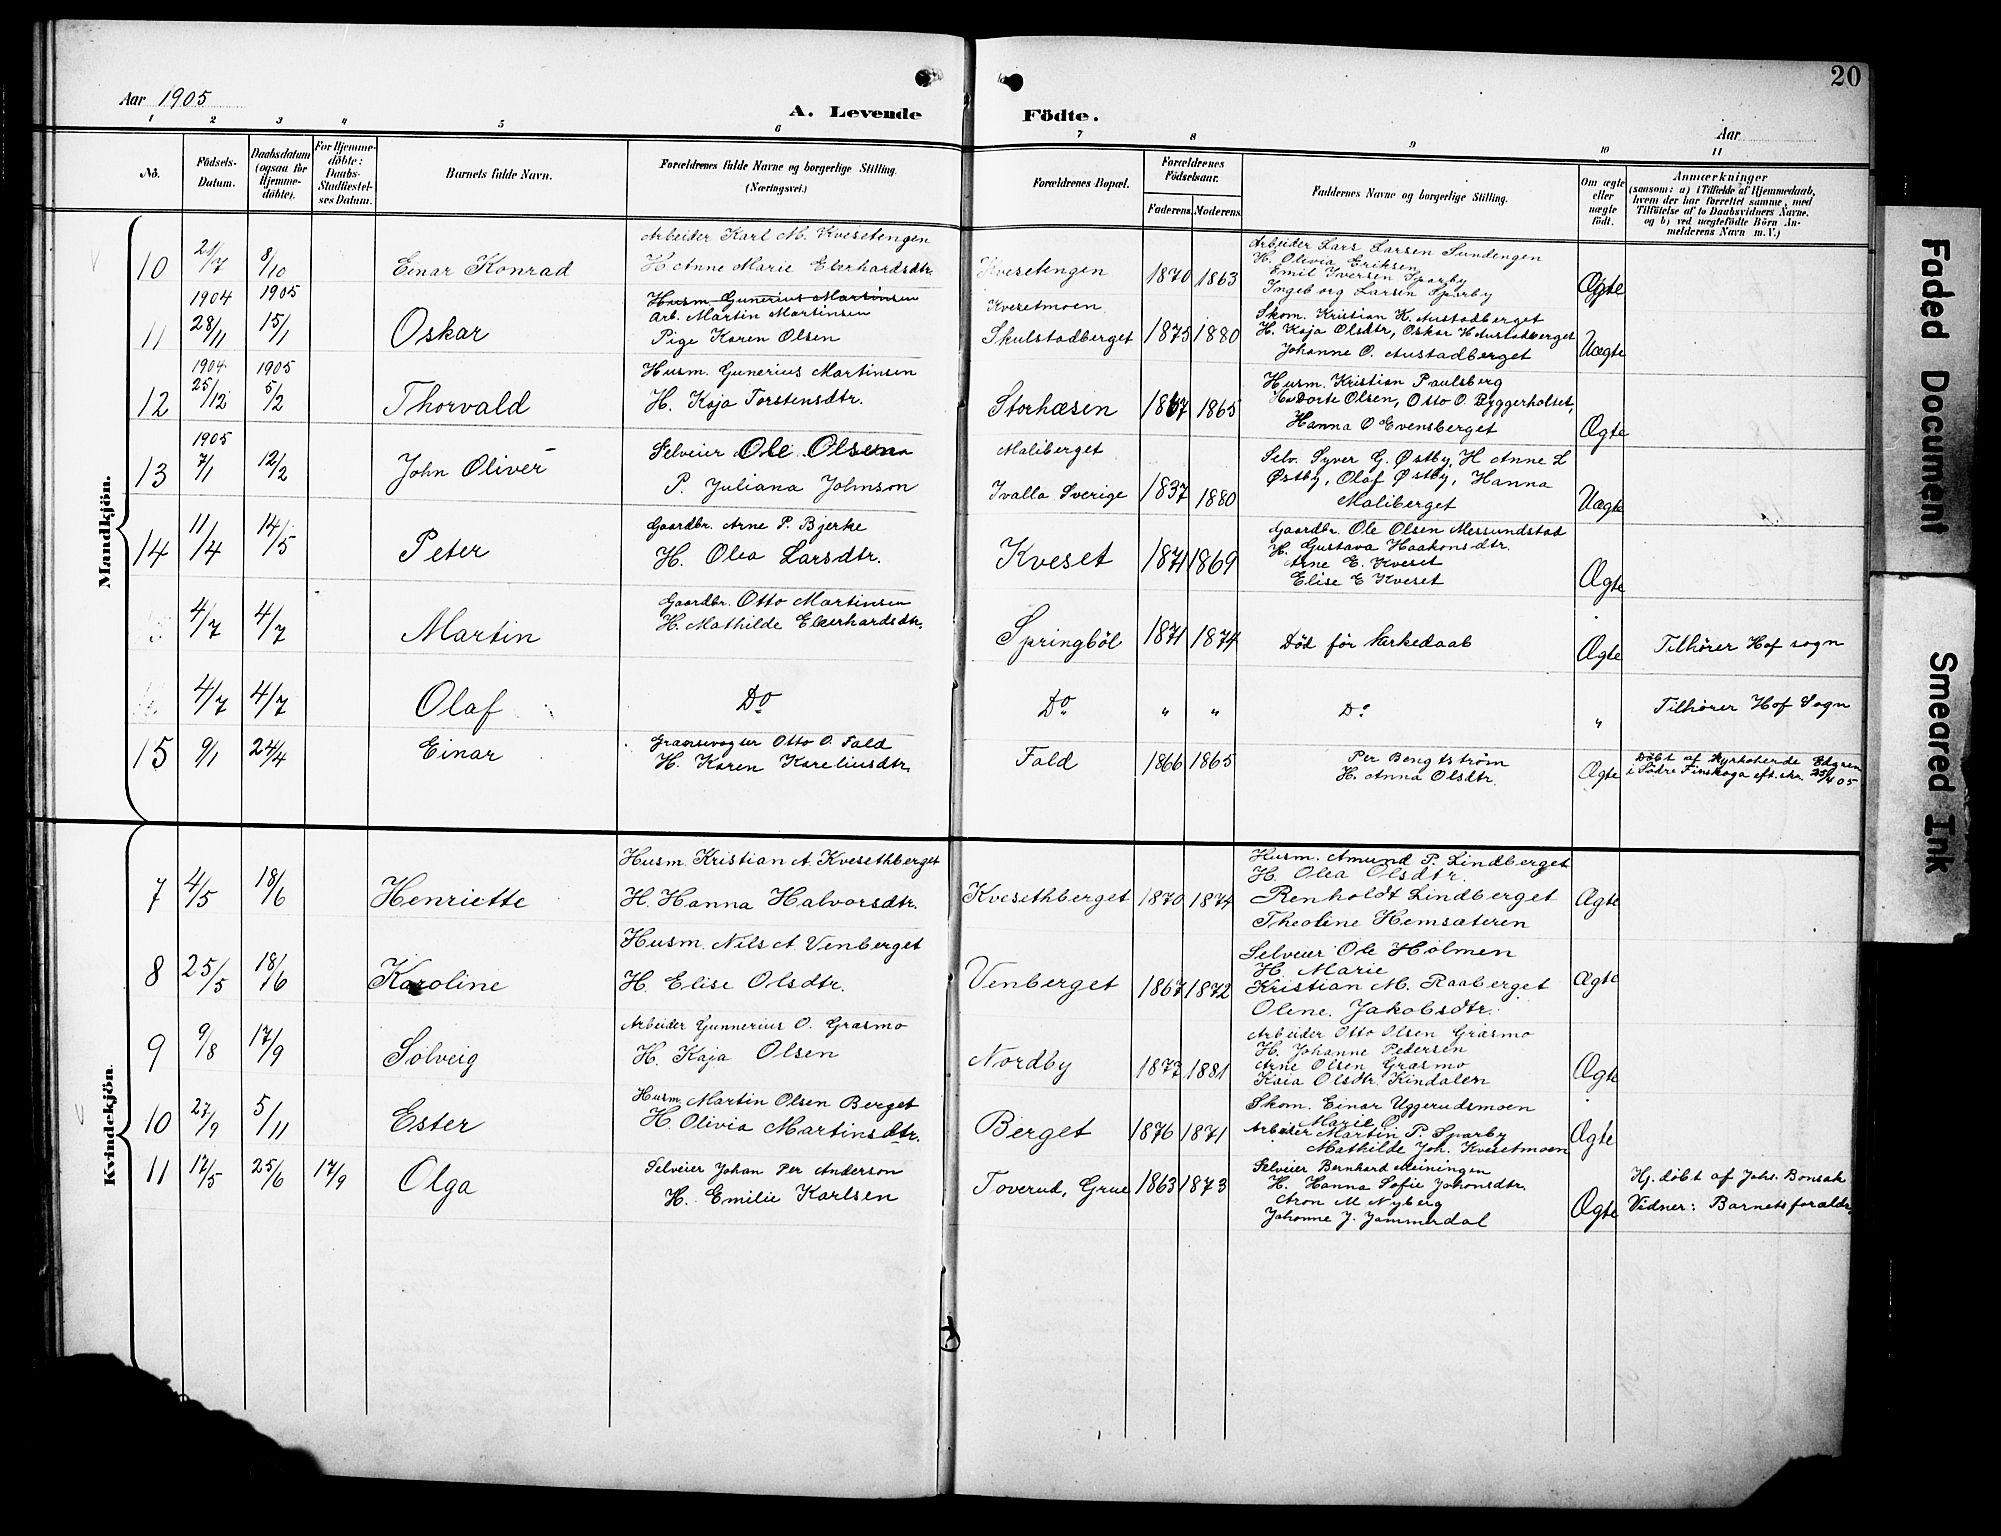 20
Aar 1905
A. Levende Födte.
Aar
1 2 3 4 5 6 7 8 9 10 11
Nö.
Födsels-Datum.
Daabsdatum (ogsaa for Hjemme-döbte).
For Hjemme-döbte: Daabs-Stadfæstel-ses Datum.
Barnets fulde Navn.
Forældrenes fulde Navne og borgerlige Stilling. (Næringsvei.)
Forældrenes Bopæl.
Forældrenes Födselsaar.
Faderens. Moderens.
Faddernes Navne og borgerlige Stilling.
Om ægte eller uægte födt.
Anmærkninger
(saasom: a) i Tilfælde af Hjemmedaab,
hvem der har forrettet samme, med
Tilföielse af to Daabsvidners Navne,
og b) ved uægtefödte Börn An-
melderens Navn m. V.)
Mandkjön.
10 21/7 8/10 Einar Konrad
Arbeider Karl M. Kvesetengen
H. Anne Marie Eberhardsdtr.
Kvesetengen 1870 1863
Arbeider Lars Larsen Sundengen
H. Olivia Eriksen
Emil Iversen Sparby
Ingeborg Larsen Sparby
Ægte
11 1904 28/11 1905 15/1 Oskar
Husm. Gunerius Martinsen
Arb. Martin Martinsen
Pige Karen Olsen
Kvesetmoen
Skulstadberget 1875 1880
Skom. Kristian K. Austadberget
H. Kaja Olsdtr, Oskar H Austadberget
Johanne O. Austadberget
Uægte
12 1904 25/12 1905 5/2 Thorvald
Husm. Gunerius Martinsen
H. Kaja Torstensdtr.
Storhæsen 1867 1865
Husm. Kristian Paulsberg
H. Dorte Olsen, Otto O. Byggerholset,
Hanna O Evensberget
Ægte
13 1905 7/1 12/2 John Oliver
Selveier Ole Olsen
P. Juliana Johnson
Maliberget
Ivalla Sverige 1837 1880
Selv. Syver G. Østby, H Anne L
Østby, Olaf Østby, Hanna
Maliberget
Uægte
14 11/4 14/5 Peter
Gaardbr. Arne P. Bjerke
H. Olea Larsdtr.
Kveset 1871 1869
Gaardbr. Ole Olsen Messundstad
H. Gustava Haakonsdtr.
Arne E. Kveset
Elise E Kveset
Ægte
4/7 4/7 Martin
Gaardbr. Otto Martinsen
H. Mathilde Eberhardsdtr.
Springböl 1871 1874
Död för kirkedaab
Ægte
Tilhører Hof sogn
4/7 4/7 Olaf
Do Do " " Do "
Tilhører Hof Sogn
15 9/1 24/4 Einar
Grænsevogter Otto O. Fald
H. Karen Kareliusdtr.
Fald 1866 1865
Per Bengtström
H. Anna Olsdtr.
Ægte
Døbt af Kyrkoherde Edgren
i Södre Finskoga eft.
Kvindekjön.
7 4/5 18/6 Henriette
Husm. Kristian A. Kvesethberget
H. Hanna Halvorsdtr.
Kvesethberget 1870 1874
Husm. Amund P. Lindberget
H. Olea Olsdtr.
Renholdt Lindberget
Theoline Hemsæteren
Ægte
8 25/5 18/6 Karoline
Husm. Nils A. Venberget
H. Elise Olsdtr.
Venberget 1867 1872
Selveier Ole Holmen
H. Marie
Kristian M. Raaberget
Oline Jakobsdtr.
Ægte
9 9/8 17/9 Solveig
Arbeider Gunnerius O. Græsmo
H. Kaja Olsen
Nordby 1873 1881
Arbeider Otto Olsen Græsmo
H. Johanne Pedersen
Arne Olsen Græsmo
Kaia Olsdtr. Kindalen
Ægte
10 27/9 5/11 Ester
Husm. Martin Olsen Berget
H. Olivia Martinsdtr.
Berget 1876 1871
Skom. Einar Uggerudsmoen
Marie O.
Arbeider Martin P. Sparby
Mathilde Joh. Kvesetmoen
Ægte
11 17/5 25/6 17/9 Olga
Selveier Johan Per Anderson
H. Emilie Karlsen
Toverud, Grue 1863 1873
Selveier Bernhard Meiningen
H. Hanna Sofie Johansdtr.
Aron M Nyberg
Johanne J. Jammerdal
Ægte
Hj. döbt af Johs. Bonsak
Vidner: Barnets forældr.
Faded Document
Smeared Ink